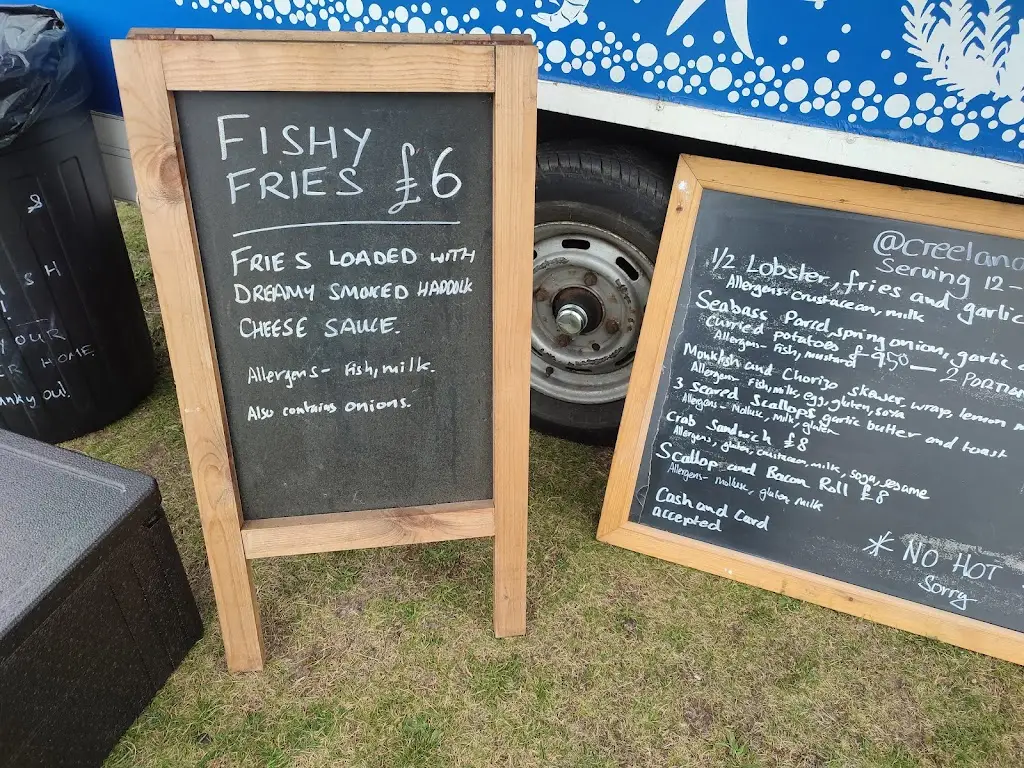 FISHY
FRIES £6
FRIES LOADED WITH
DREAMY SMOKED HADDOCK
CHEESE SAUCE.
Allergens - fish, milk.
Also contains onions.
@creeland
Serving 12-
1/2 Lobster, fries and garlic
Allergens- crustacean, milk
Seabass Parcel, spring onion, garlic
curried potatoes £9.50 — 2 PORTION
Allergens- fish, mustard
Monkfish and Chorizo skewer, wrap, lemon
Allergens- fish, milk, egg, gluten, soya
3 seared Scallops garlic butter and toast
Allergens- Mollusc, milk, gluten
Crab Sandwich £8
Allergens, gluten, crustacean, milk, soya, sesame
Scallop and Bacon Roll £8
Allergens- mollusc, gluten, milk
Cash and Card
accepted
* NO HOT
Sorry
&
SH
YOUR
R HOME
anky ou!